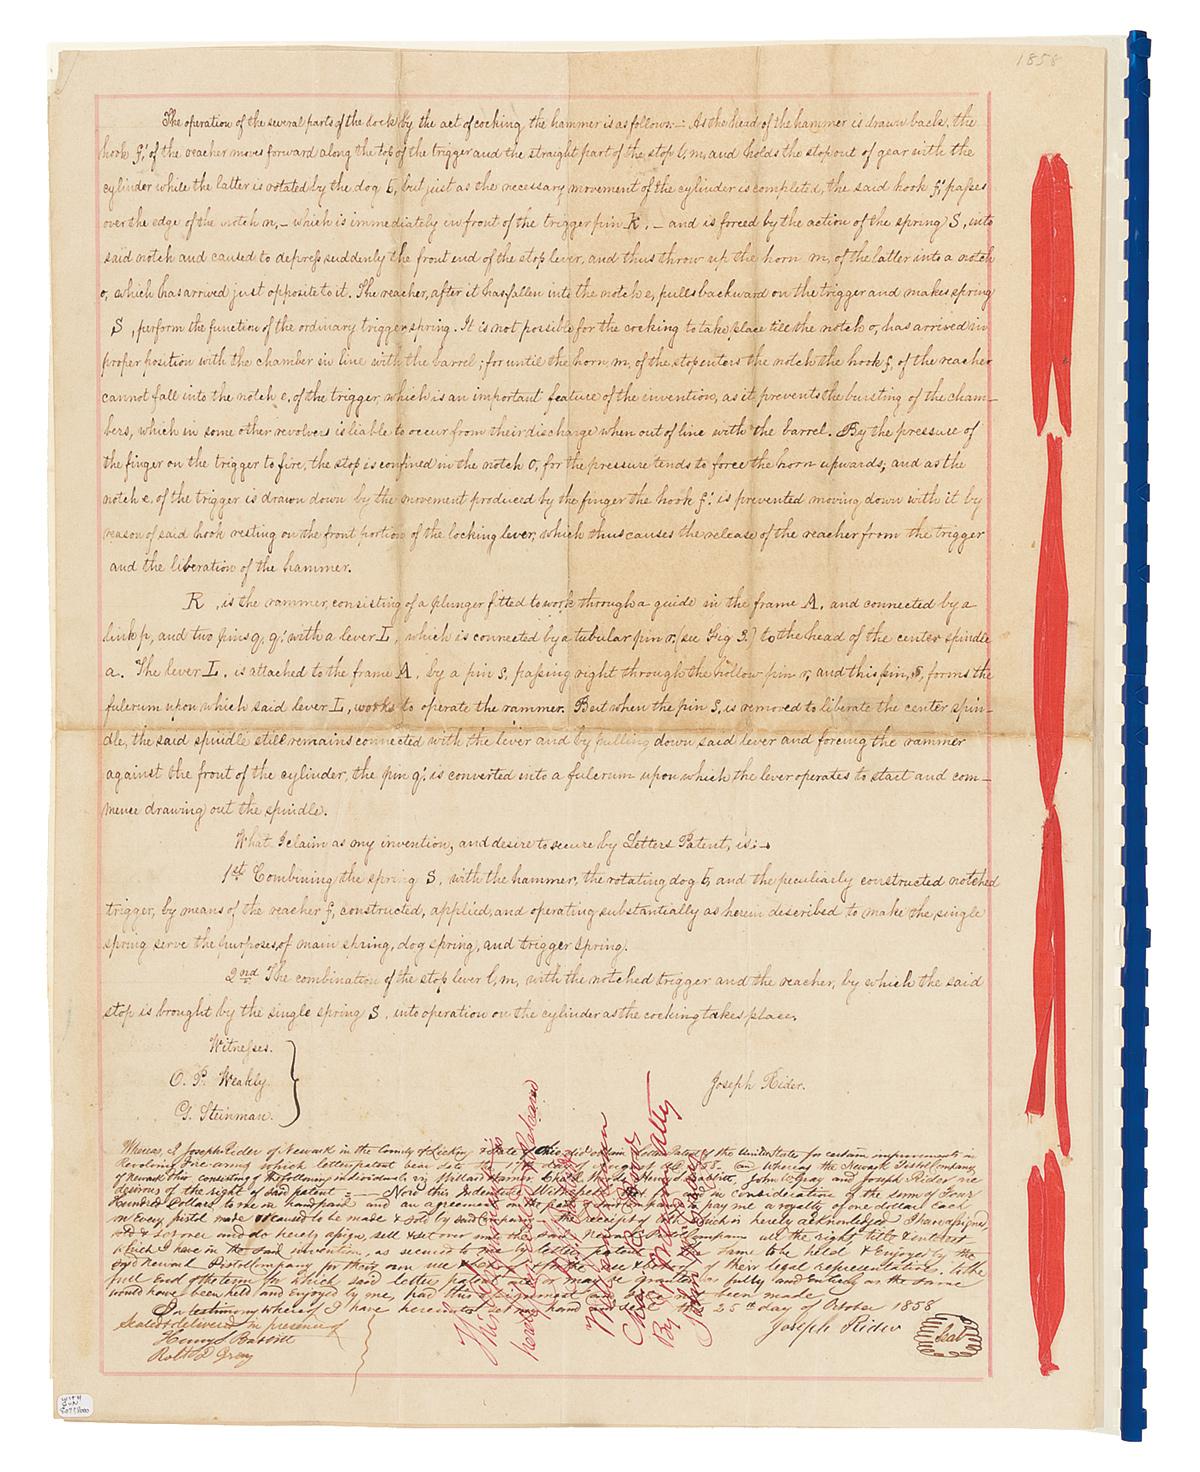 1858
The operation of the several parts of the lock by the act of cocking the hammer is as follows:– As the head of the hammer is drawn back, the
hook f', of the reacher moves forward along the top of the trigger and the straight part of the stop l, m, and holds the stop out of gear with the
cylinder while the latter is rotated by the dog E, but just as the necessary movement of the cylinder is completed, the said hook f', passes
over the edge of the notch n, – which is immediately in front of the trigger pin K, – and is forced by the action of the spring S, into
said notch and caused to depress suddenly the front end of the stop lever, and thus throw up the horn m, of the latter into a notch
o, which has arrived just opposite to it. The reacher, after it has fallen into the notch e, pulls backward on the trigger and makes spring
S, perform the function of the ordinary trigger spring. It is not possible for the cocking to take place till the notch o, has arrived in
proper position with the chamber in line with the barrel; for until the horn m, of the stop enters the notch the hook f, of the reacher
cannot fall into the notch e, of the trigger, which is an important feature of the invention, as it prevents the bursting of the cham–
bers, which in some other revolvers is liable to occur from their discharge when out of line with the barrel. By the pressure of
the finger on the trigger to fire, the stop is confined in the notch O, for the pressure tends to force the horn upwards; and as the
notch e, of the trigger is drawn down by the movement produced by the finger the hook f' is prevented moving down with it by
reason of said hook resting on the front portion of the locking lever, which thus causes the release of the reacher from the trigger
and the liberation of the hammer.
R, is the rammer, consisting of a plunger fitted to work through a guide in the frame A, and connected by a
link p, and two pins q, q' with a lever L, which is connected by a tubular pin r, (see Fig 3.) to the head of the center spindle
a. The lever L, is attached to the frame A, by a pin s, passing right through the hollow pin r, and this pin, s, forms the
fulcrum upon which said lever L, works to operate the rammer. But when the pin s, is removed to liberate the center spin–
dle, the said spindle still remains connected with the lever and by pulling down said lever and forcing the rammer
against the front of the cylinder, the pin q' is converted into a fulcrum upon which the lever operates to start and com–
mence drawing out the spindle.
What I claim as my invention, and desire to secure by Letters Patent, is:–
1st Combining the spring S, with the hammer, the rotating dog E, and the peculiarly constructed notched
trigger, by means of the reacher f, constructed, applied, and operating substantially as herein described to make the single
spring serve the purposes, of main spring, dog spring, and trigger spring.
2nd The combination of the stop lever l, m, with the notched trigger and the reacher, by which the said
stop is brought by the single spring S, into operation on the cylinder as the cocking takes place.
Witnesses.
O. P. Weakly.
G. Steinman.
Joseph Rider.
Whereas, I Joseph Rider of Newark in the County of Licking & State of Ohio did obtain Letters Patent of the United State for certain improvements in
Revolving Fire arms which letters patent bear date the 17th day of August 1858 Whereas the Newark Pistol Company
of Newark Ohio consisting of the following individuals, viz Willard Warner Henry S Babbitt, John W Gray and Joseph Rider are
desirous of the right of said patent – Now this Indenture Witnesseth that for and in consideration of the sum of Four
Hundred Dollars to me in hand paid and an agreement on the part of said company to pay me a royalty of one dollar Each
on Every pistol made or caused to be made & sold by said Company the receipt of which is hereby acknowledged I have assigned,
sold & set over and do hereby assign, sell & set over unto the said Newark Pistol Company all the right title & interest
which I have in the said invention, as secured to me by letters patent the same to be held & Enjoyed by the
said Newark Pistol Company for their own use & behoof of their legal representatives, to the
full End of the term for which said letters patent are or may be granted as fully and Entirely as the same
would have been held and Enjoyed by me, had this assignment and sale not been made
In testimony whereof I have hereunto set my hand and seal this 25th day of October 1858
Sealed & delivered in presence of
Henry S Babbitt
Robt D Grey
Joseph Rider
Seal